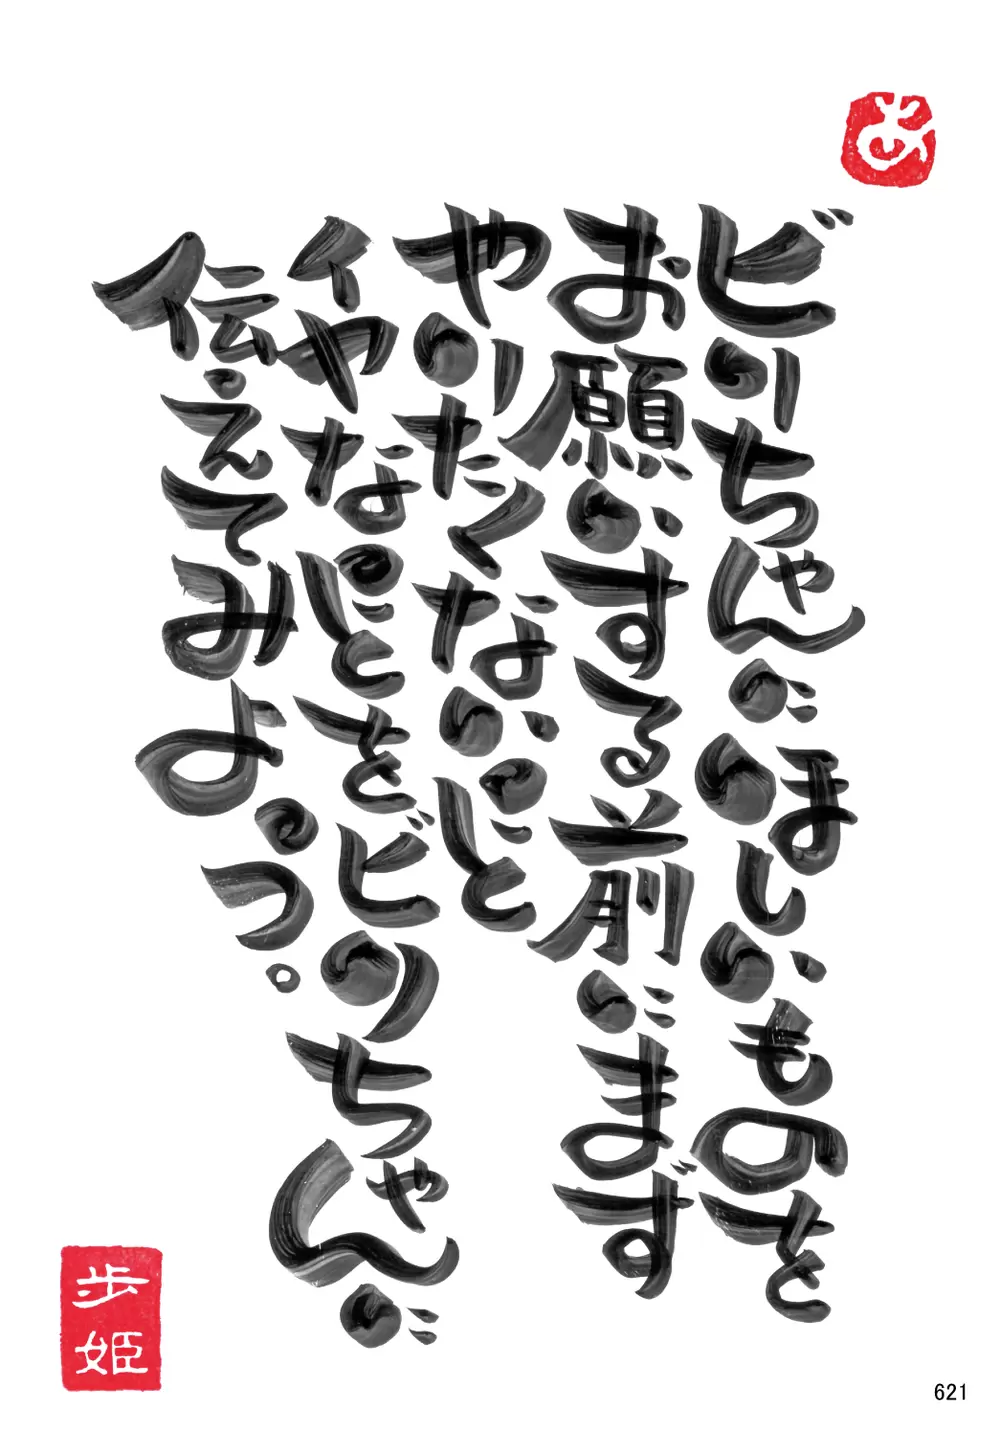 あ
ビリちゃんにほしいものを
お願いする前にまず
やりたくないこと
イヤなことをビリちゃんに
伝えてみよう。
歩姫
621